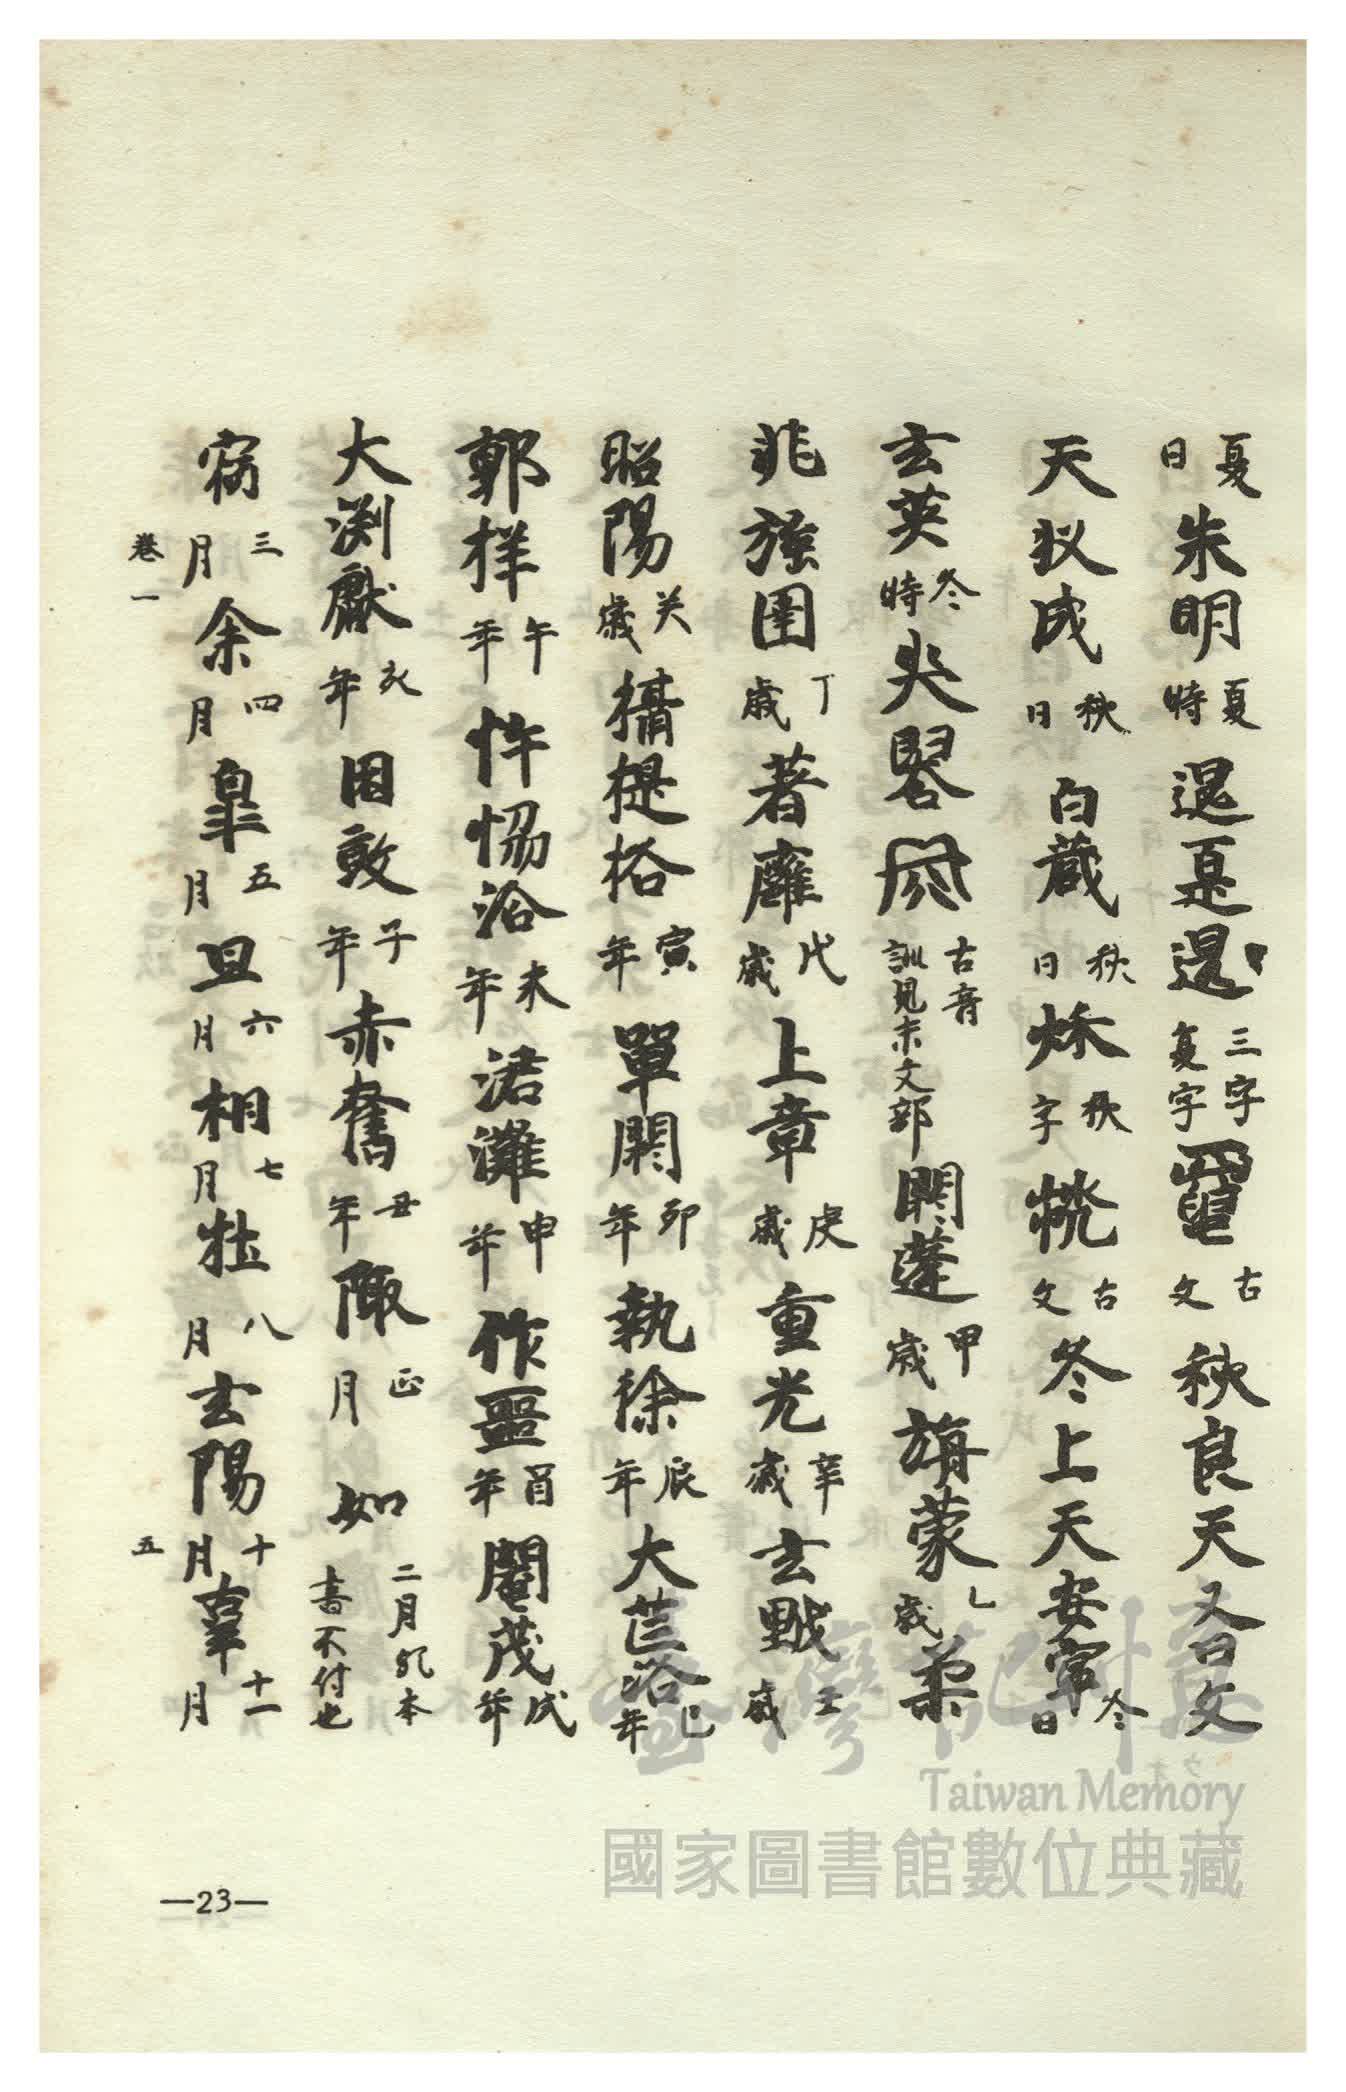 夏日朱明夏時𨓆𡕾𨓆三字夏字古文秋良天又呂文
天狄成秋日白蔵秋日秌秋字古文冬上天安寧冬日
玄英冬時古音訓見末文部閼蓬甲歳旃蒙乙歳柔
兆強圉丁歳著雍戊歳上章庚歳重光辛歳玄黓壬歳
昭陽癸歳攝提格寅年單閼卯年執徐辰年大荒落巳年
郭牂午年協洽未年涒灘申年作噩酉年閹茂戌年
大渕獻亥年困敦子年赤奮丑年陬正月如二月此本書不付也
寎三月余四月皐五月且六月相七月壯八月玄陽十月辜十一月
卷一
五
—23—
臺灣記憶
Taiwan Memory
國家圖書館數位典藏